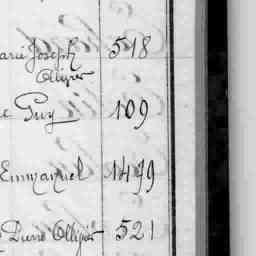 arie Joseph 518
Ollivier
e Guy 109
Emmanuel 1499
Pierre Ollivier 521